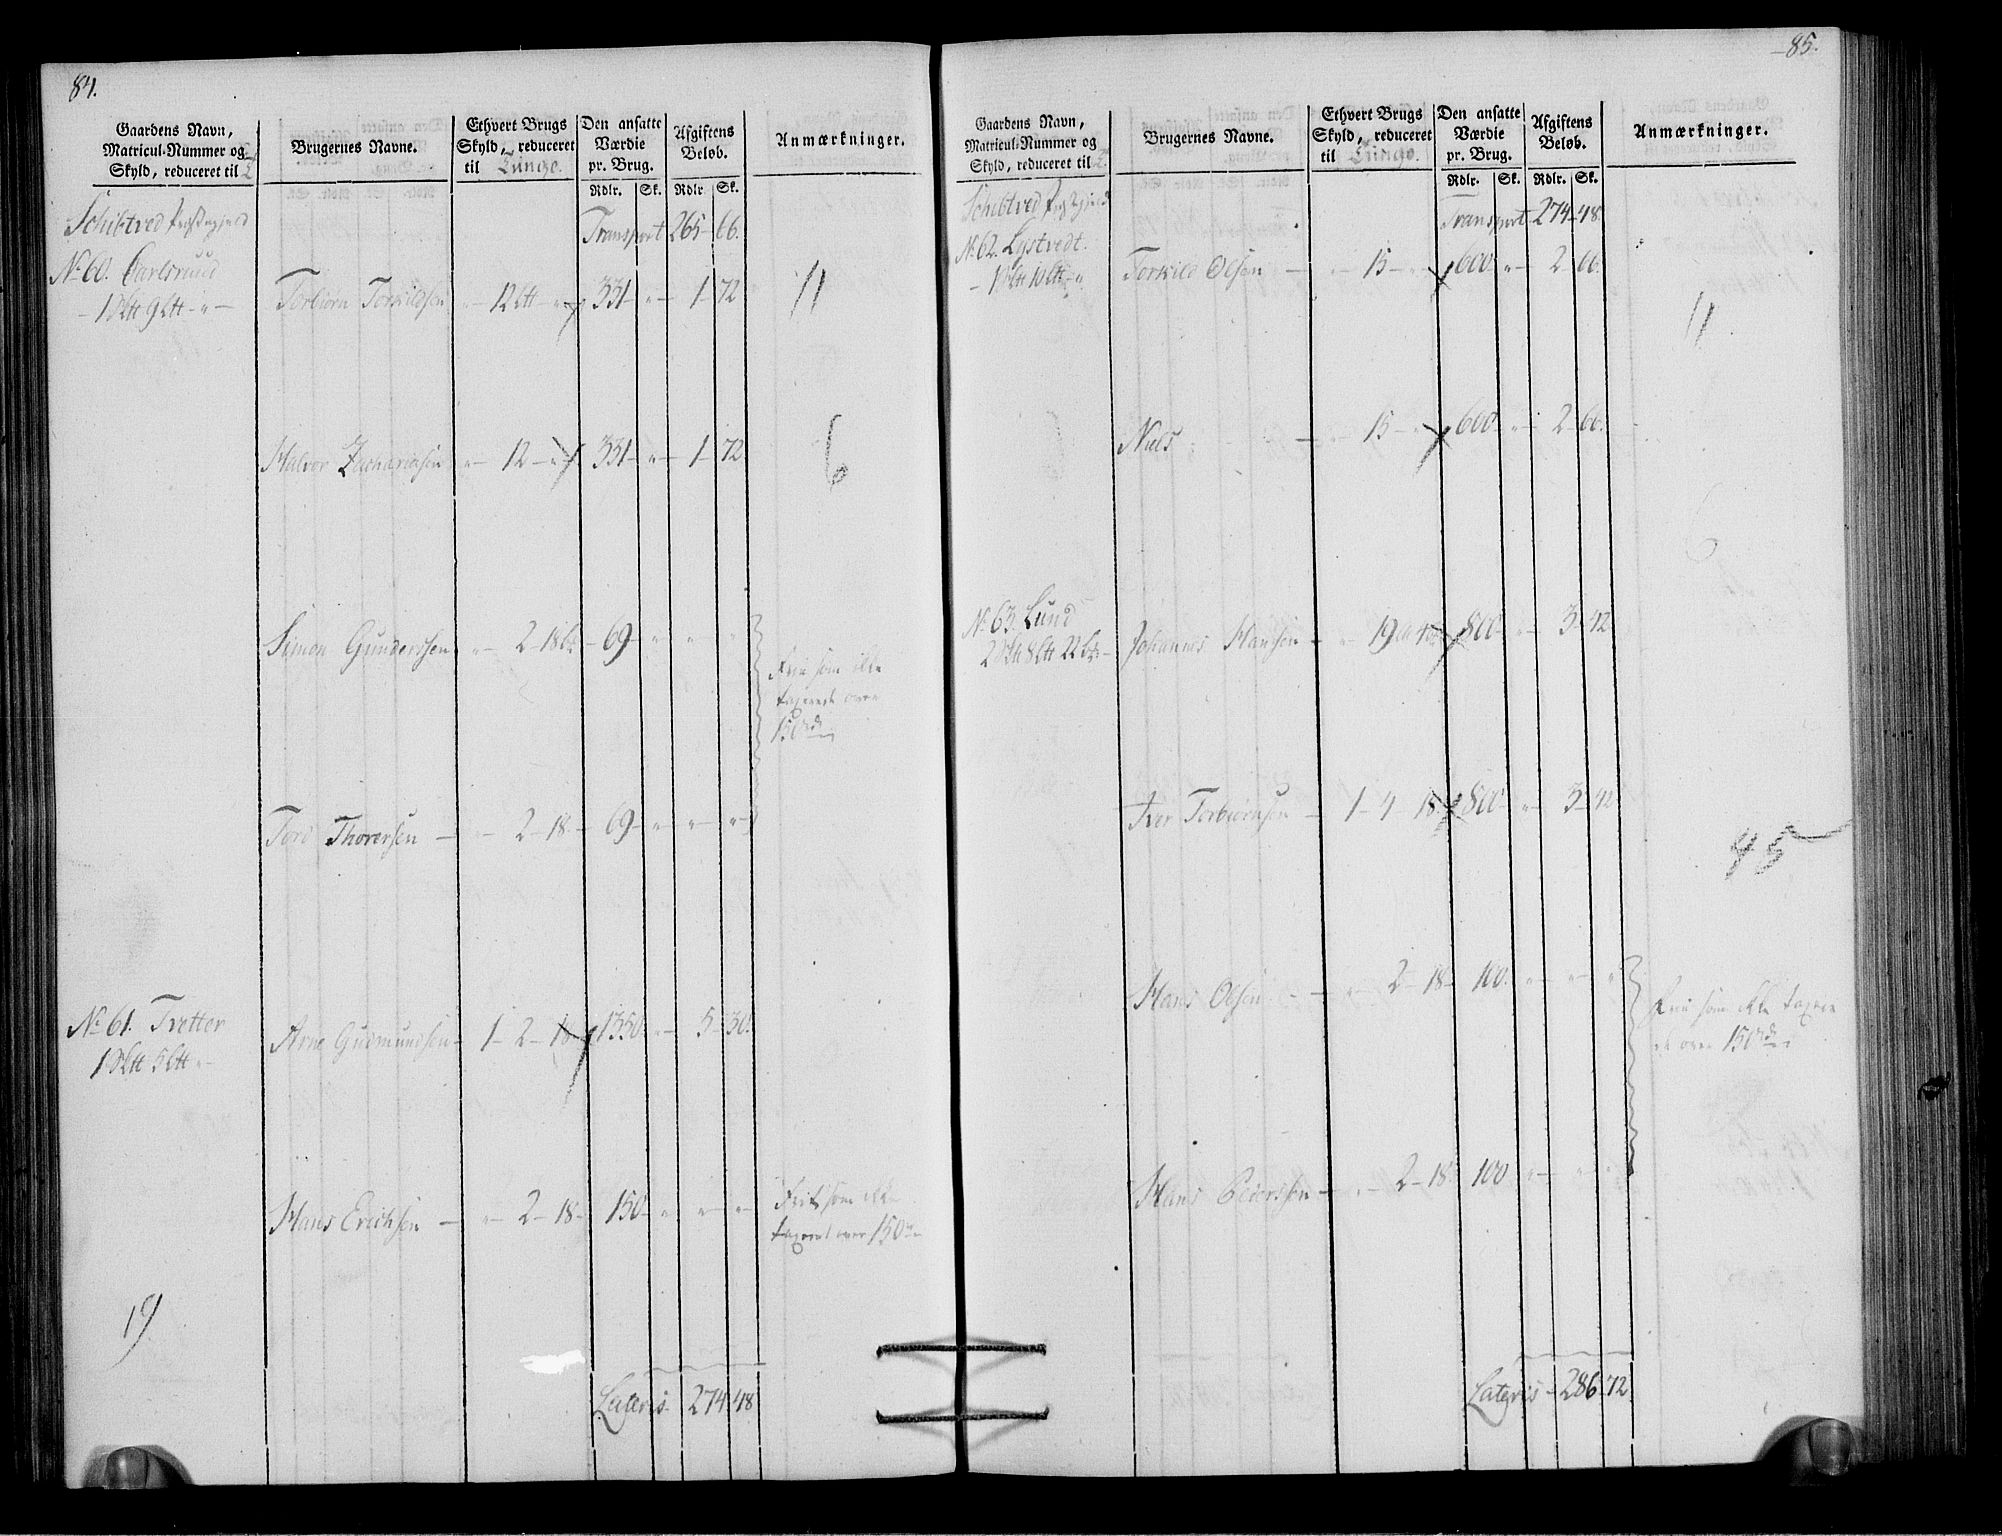 84.
Gaardens Navn,
Matricul-Nummer og
Skyld, reduceret til
Brugernes Navne.
Ethvert Brugs
Skyld, reduceret
til Tunge.
Den ansatte
Værdie
pr. Brug.
Rdlr. Sk.
Afgiftens
Beløb.
Rdlr Sk.
Anmærkninger.
Schibtved
Transport 265 66.
No 60. Carlsrund
Torbiørn Torkildsen 12 331 " 1 72
11
Halvor Zachariasen " 12 " 331 " 1 72
6
Simon Gunderssen " 2 18 69 " " "
Frie som ikke
taxerede over
150 rd
Tord Thorersen " 2 18 69 " " "
No 61. Tvetter
Arne Gudmundsen 1 2 18 1350 " 5 30.
Hans Erichsen " 2 18 150 " " "
Frit som ikke
taxeret over 150
19
Lateris 274 48
85.
Gaardens Navn,
Matricul-Nummer og
Skyld, reduceret til
Brugernes Navne.
Ethvert Brugs
Skyld, reduceret
til Tunge.
Den ansatte
Værdie
pr. Brug.
Rdlr. Sk.
Afgiftens
Beløb.
Rdlr. Sk.
Anmærkninger.
Schibtved
Transport 274 48
No 62. Lystvedt.
Torkild Olsen " 15 " 600 " 2 66.
11
Niels " 15 " 600 " 2 66.
No 63. Lund
Johannes Hansen " 19 800 " 3 42
Iver Torbiørnsen 1 4 18 800 " 3 42
45
Hans Olsen " 2 18 100. " " "
Frie som ikke taxere
de over 150 rd
Hans Pederssen " 2 18 100 " " "
Lateris 286 72